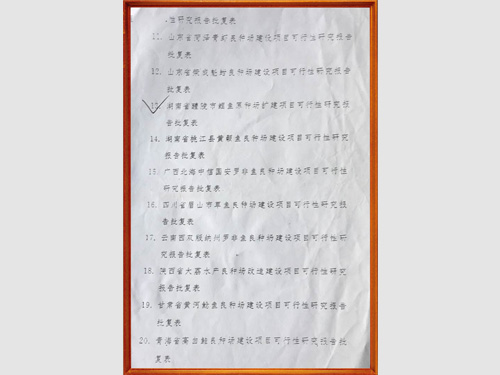 性研究报告批复表
11. 山东省菏泽黄颡良种场建设项目可行性研究报告
批复表
12. 山东省荣成魁蚶良种场建设项目可行性研究报告
批复表
13. 湖南省醴陵市鲤鱼原种场扩建项目可行性研究报
告批复表
14. 湖南省桃江县黄颡鱼良种场建设项目可行性研究
报告批复表
15. 广西北海中信国安罗非鱼良种场建设项目可行性
研究报告批复表
16. 四川省眉山市草鱼良种场建设项目可行性研究报
告批复表
17. 云南西双版纳州罗非鱼良种场建设项目可行性研
究报告批复表
18. 陕西省大荔水产良种场改造建设项目可行性研究
报告批复表
19. 甘肃省黄河鲶鱼良种场建设项目可行性研究报告
批复表
20. 青海省高白鲑良种场建设项目可行性研究报告批
复表